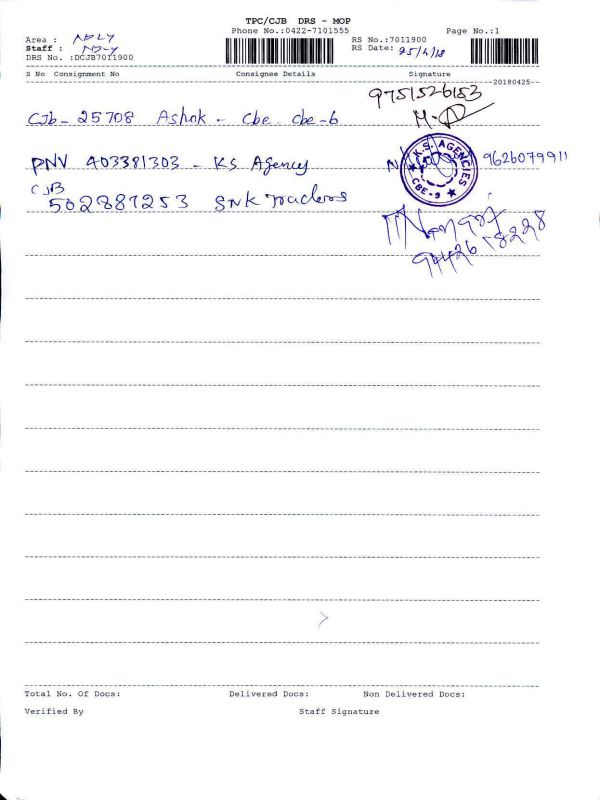 TPC/CJB DRS - MOP
Phone No.:0422-7101555 Page No.:1
Area : NDLY RS No.:7011900
Staff : NDLY RS Date: 25/4/18
DRS No. :DCJB7011900
S No Consignment No Consignee Details Signature
20180425
9751526153
CJb - 25708 Ashok - Cbe cbe-6 M.
PNV 403381303 - KS Agency K.S. AGENCIES CBE-9 9626079911
CJB
502887253 SNK Traders
94426 78228
Total No. Of Docs: Delivered Docs: Non Delivered Docs:
Verified By Staff Signature